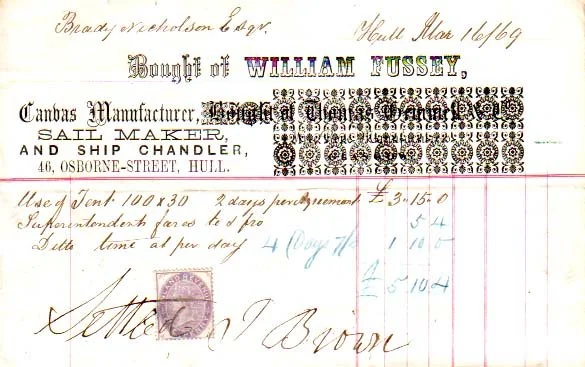 Brady Nicholson Esqr.
Hull Mar 16/69
Bought of WILLIAM FUSSEY,
Canvas Manufacturer,
SAIL MAKER,
AND SHIP CHANDLER,
46, OSBORNE-STREET, HULL.
Use of Tent 100 x 30 2 days per Agreement £ 3 - 15 - 0
Superintendents fares to & fro 5 4
Ditto time at per day 4 Days 7/6 1 10 0
£ 5 10 4
INLAND REVENUE
Settled J Brown